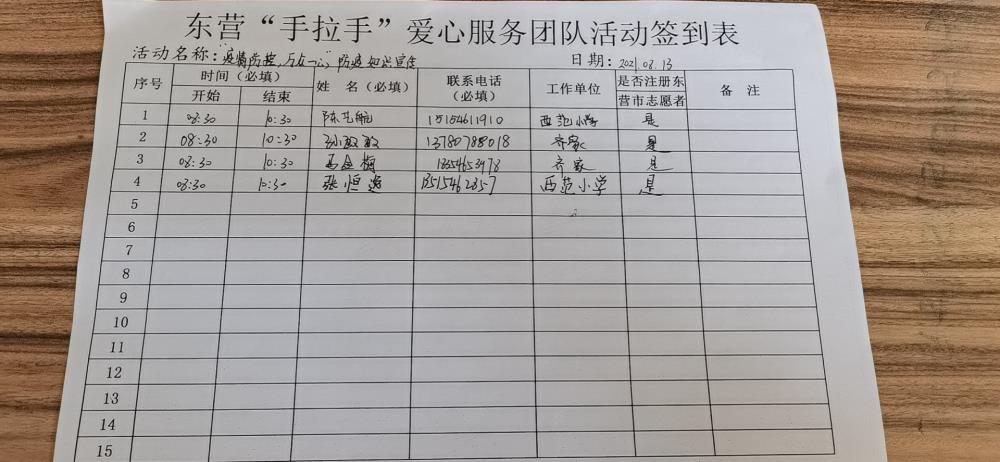 东营“手拉手”爱心服务团队活动签到表
活动名称：疫情防控，万众一心，防疫知识宣传 日期：2021.08.13
序号 时间（必填） 姓 名（必填） 联系电话（必填） 工作单位 是否注册东营市志愿者 备 注
开始 结束
1 08:30 10:30 15154611910 西范小学 是
2 08:30 10:30 孙政政 13780788018 齐家 是
3 08:30 10:30 马金梅 齐家 是
4 08:30 10:30 张恒逸 西范小学 是
5
6
7
8
9
10
11
12
13
14
15